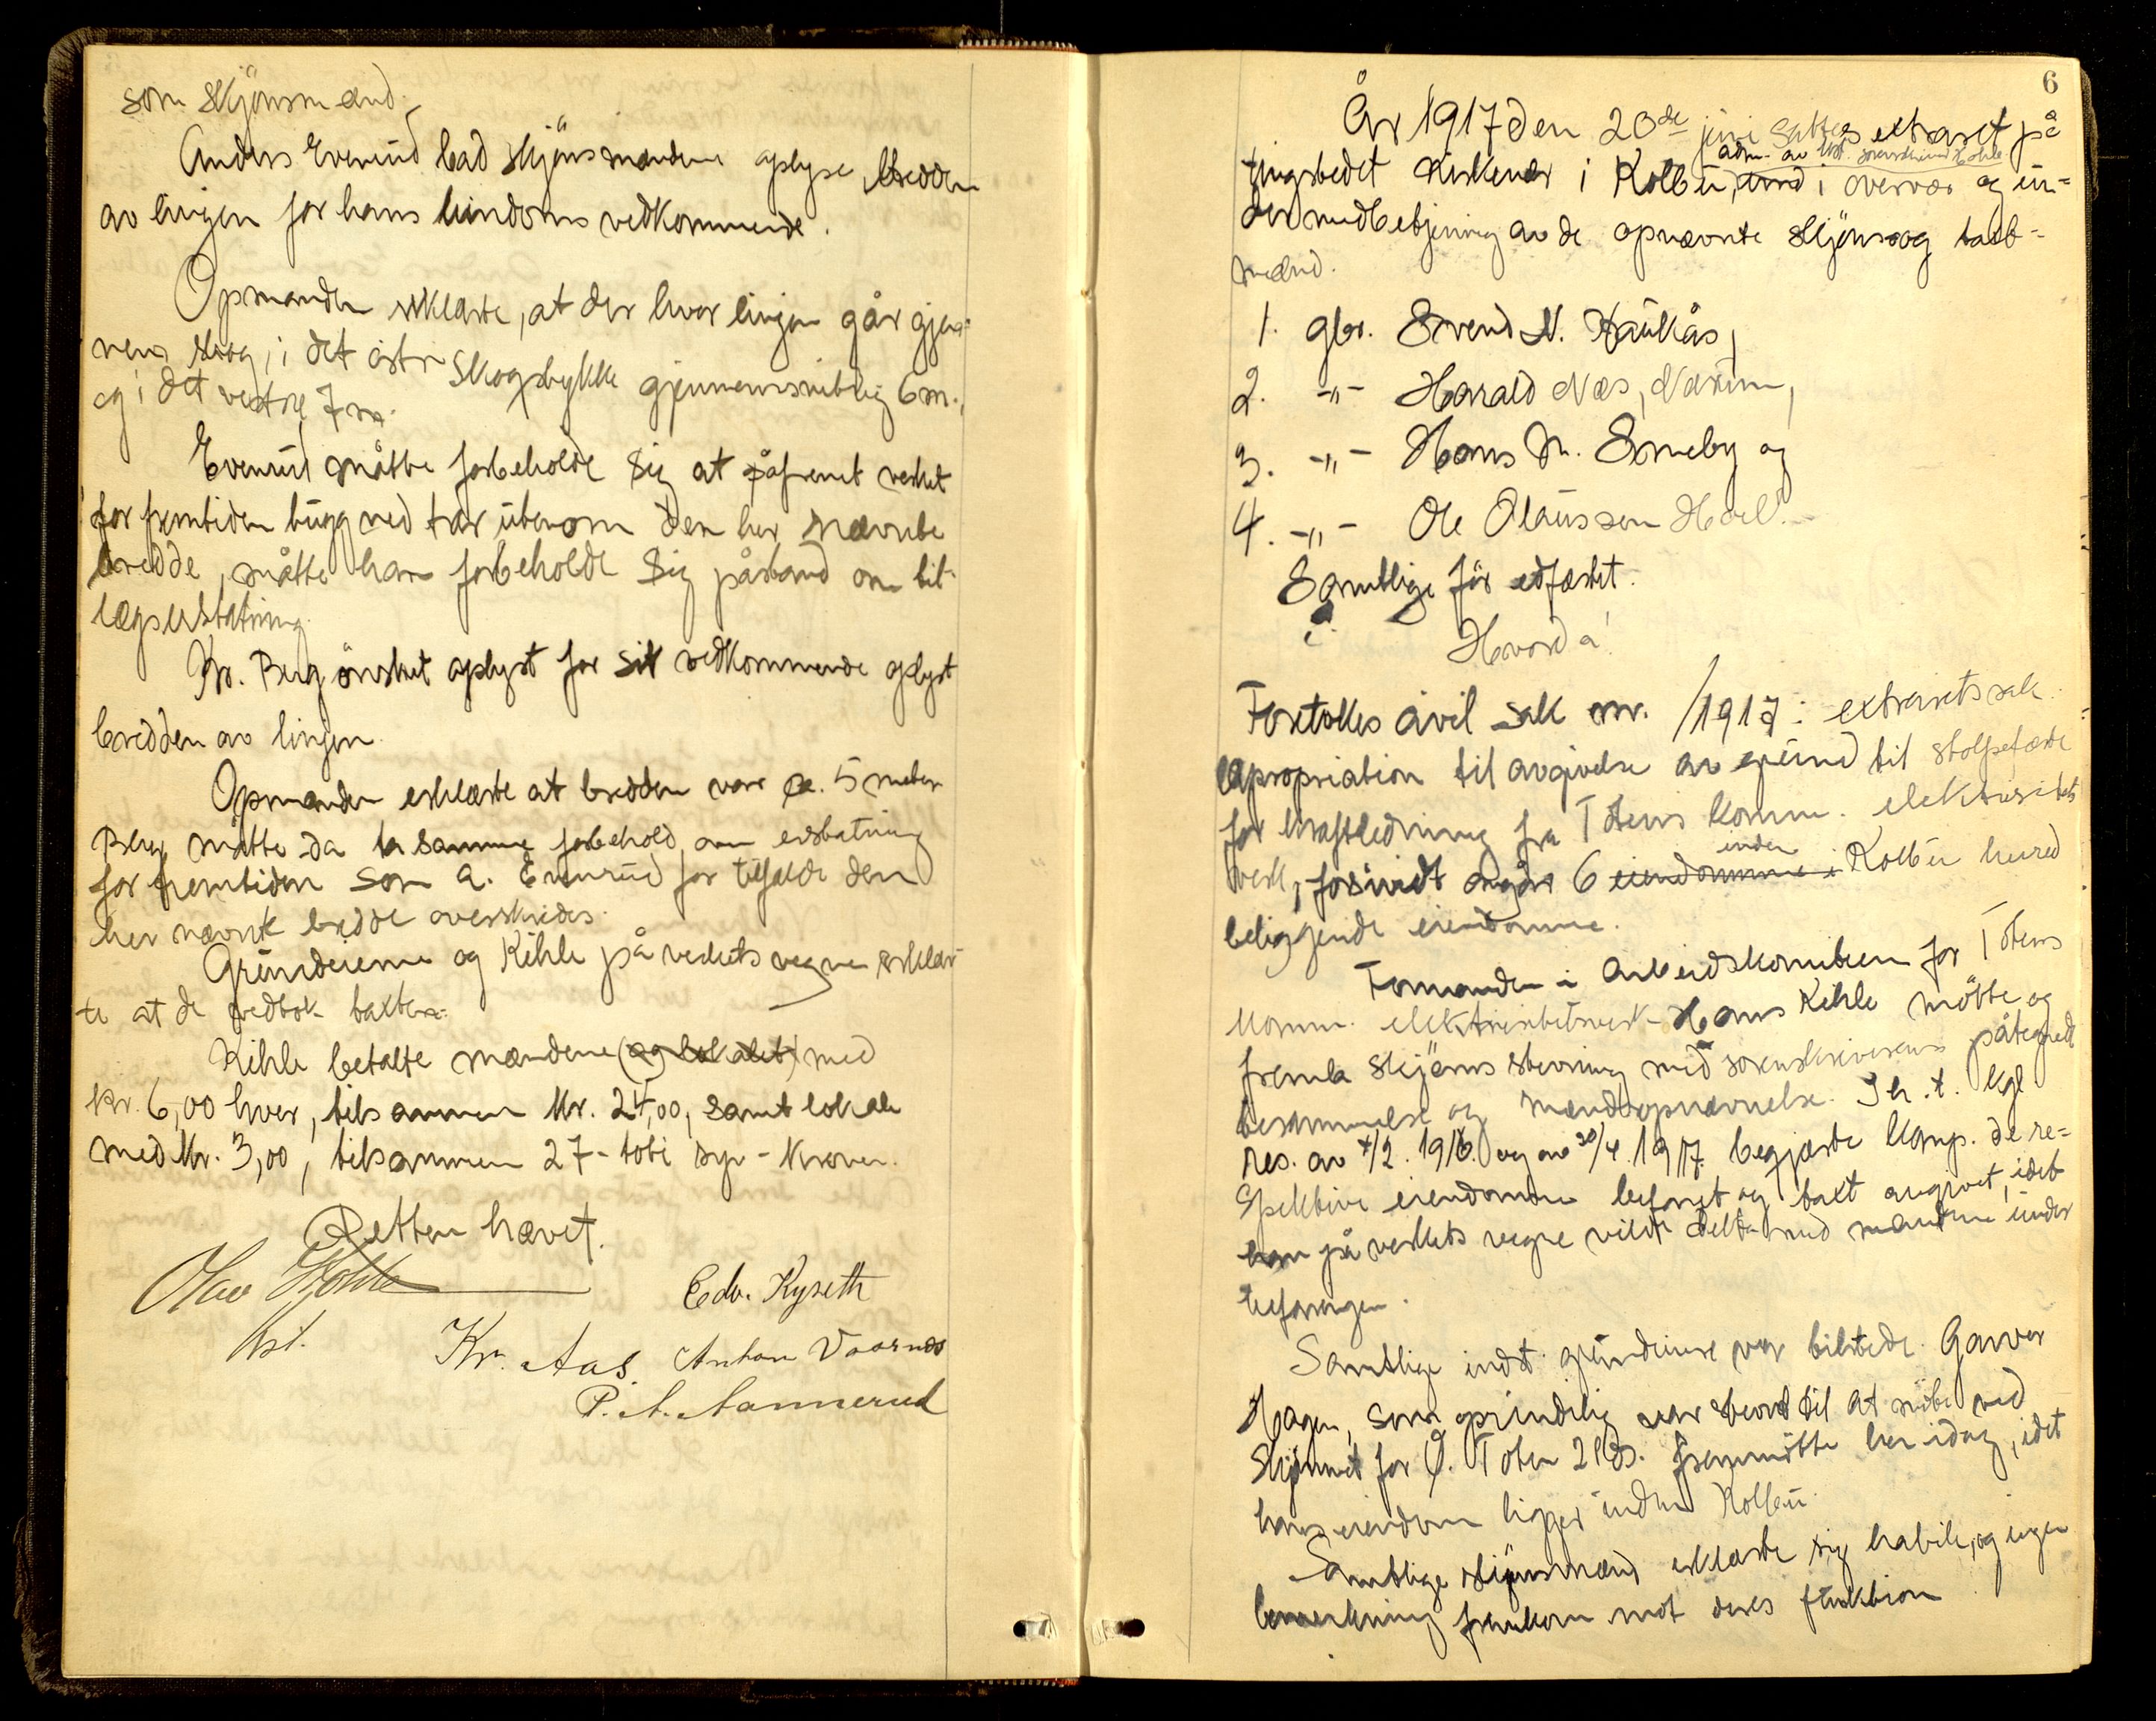 som skjönsmænd.
Anders Evenrud bad skjönsmændene oplyse bredden
av linjen for hans eiendoms vedkommende.
Opmanden erklærte, at der hvor linjen går gjen-
nem skog, i det östre skogstykke gjennemsnitlig 6 m.,
og i det vestre 7 m.
Evenrud måtte forbeholde sig at såfremt verket
for fremtiden hugg ved trær utenom den her nævnte
bredde, måtte han forbeholde sig påstand om til-
lægserstatning.
Kr. Berg önsket oplyst for sit vedkommende oplyst
bredden av linjen.
Opmanden erklærte at bredden var ca. 5 meter
Berg måtte da ta samme forbehold om erstatning
for fremtiden som A. Evenrud for tilfælde den
her nævnte bredde overskrides.
Grundeierne og Kihle på verkets vegne erklær-
te at de vedtok taxten.
Kihle betalte mændene (og lokalet) med
kr. 6,00 hver, tilsammen kr. 24,00, samt lokale
med kr. 3,00, tilsammen 27 - toti syv - kroner.
Retten hævet.
Olav Hohle
kst.
Edv. Kyseth
Kr. Aas. Anton Vaarnæs
P. A. Aannerud
6
År 1917 den 20de juni sattes extraret på
adm. av kst. sorenskriver Hohle
tingstedet i Kolbu, i overvær og un-
der medbetjening av de opnævnte skjöns og taxt-
mænd.
1. gbr. Svend N. Haukås,
2. -"- Harald Næs, Narum,
3. -"- Hans M. Sneby og
4. -"- Ole Olaussen Hoel.
Samtlige för edfæstet.
Hvorda!
Foretokes civil sak nr. /1917: extraretssak
expropriation til avgivelse av grund til stolpefæste
for kraftledning fra Totens komm. elektrisitets
verk, forsåvidt angår 6 inden eiendomme i Kolbu herred
beliggende eiendomme.
Formanden i arbeidskomiteen for Totens
komm. elektrisitetsverk Hans Kihle mötte og
fremla skjöns stevning med sorenskriverens påtegnede
berammelse og mændsopnævnelse. I h. t. kgl.
res. av 4/2. 1916. og av 20/4. 1917. begjærte komp. de re-
spektive eiendomme befaret og taxt avgivet, idet
han på verkets vegne vilde delta med mændene under
befaringen.
Samtlige indst. grundeiere var tilstede. Garver
Hagen, som oprindelig var stevnt til at möte ved
skjönnet for Ö. Toten 21 ds. fremmötte her idag, idet
hans eiendom ligger inden Kolbu.
Samtlige skjönsmænd erklærte sig habile, og ingen
bemerkning fremkom mot deres funktion